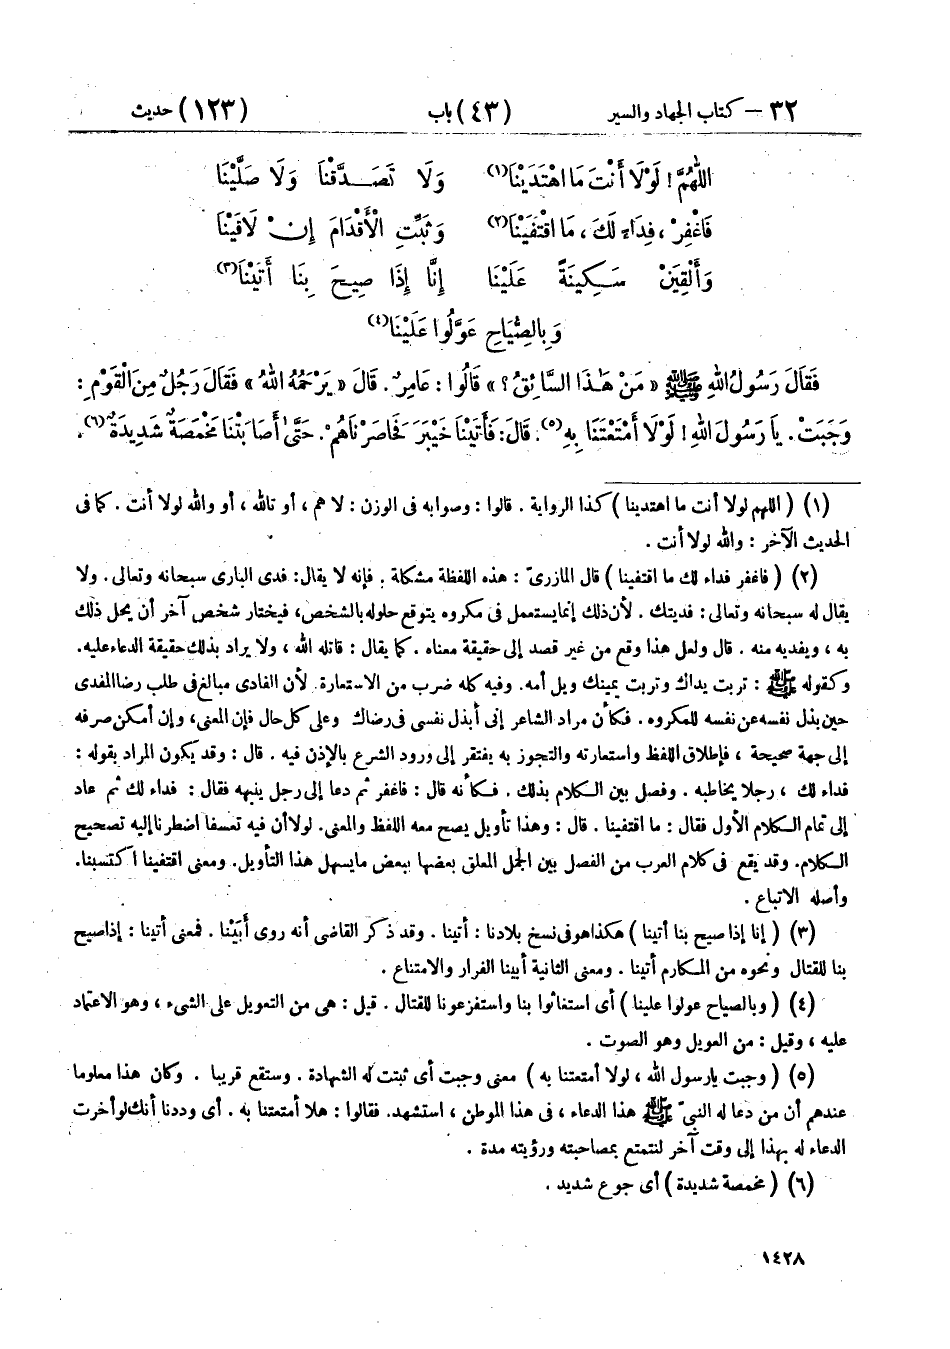 ٣٢ – كتاب الجهاد والسير (٤٣) باب (١٢٣) حديث
اللّٰهُمَّ! لَوْلَا أَنْتَ مَا اهْتَدَيْنَا(١) وَلَا تَصَدَّقْنَا وَلَا صَلَّيْنَا
فَاغْفِرْ، فِدَاءً لَكَ، مَا اقْتَفَيْنَا(٢) وَثَبِّتِ الْأَقْدَامَ إِنْ لَاقَيْنَا
وَأَلْقِيَنْ سَكِينَةً عَلَيْنَا إِنَّا إِذَا صِيحَ بِنَا أَتَيْنَا(٣)
وَبِالصِّيَاحِ عَوَّلُوا عَلَيْنَا(٤)
فَقَالَ رَسُولُ اللهِ ﷺ « مَنْ هَـٰذَا السَّائِقُ؟ » قَالُوا : عَامِرٌ. قَالَ « يَرْحَمُهُ اللهُ » فَقَالَ رَجُلٌ مِنَ الْقَوْمِ :
وَجَبَتْ. يَا رَسُولَ اللهِ! لَوْلَا أَمْتَعْتَنَا بِهِ(٥). قَالَ: فَأَتَيْنَا خَيْبَرَ فَحَاصَرْنَاهُمْ. حَتَّىٰ أَصَابَتْنَا مَخْمَصَةٌ شَدِيدَةٌ(٦).
(١) ( اللهم لولا أنت ما اهتدينا ) كذا الرواية . قالوا : وصوابه فى الوزن : لا هم ، أو تالله ، أو والله لولا أنت . كما فى
الحديث الآخر : والله لولا أنت .
(٢) ( فاغفر فداء لك ما اقتفينا ) قال المازرىّ : هذه اللفظة مشكلة . فإنه لا يقال: فدى البارى سبحانه وتعالى . ولا
يقال له سبحانه وتعالى : فديتك . لأن ذلك إنما يستعمل فى مكروه يتوقع حلوله بالشخص، فيختار شخص آخر أن يحل ذلك
به ، ويفديه منه . قال ولعل هذا وقع من غير قصد إلى حقيقة معناه . كما يقال : قاتله الله ، ولا يراد بذلك حقيقة الدعاء عليه.
وكقوله ﷺ : تربت يداك وتربت يمينك وويل أمه. وفيه كله ضرب من الاستعارة. لأن الفادى مبالغ فى طلب رضا المفدى
حين بذل نفسه عن نفسه للمكروه . فكأن مراد الشاعر إنى أبذل نفسى فى رضاك وعلى كل حال فإن المعنى، وإن أمكن صرفه
إلى جهة صحيحة ، فإطلاق اللفظ واستعارته والتجوز به يفتقر إلى ورود الشرع بالإذن فيه . قال : وقد يكون المراد بقوله :
فداء لك ، رجلا يخاطبه . وفصل بين الكلام بذلك . فكأنه قال : فاغفر ثم دعا إلى رجل ينبهه فقال : فداء لك ثم عاد
إلى تمام الكلام الأول فقال : ما اقتفينا . قال : وهذا تأويل يصح معه اللفظ والمعنى. لولا أن فيه تعسفا اضطرنا إليه تصحيح
الكلام. وقد يقع فى كلام العرب من الفصل بين الجمل المعلق بعضها ببعض ما يسهل هذا التأويل. ومعنى اقتفينا اكتسبنا.
وأصله الاتباع .
(٣) ( إنا إذا صيح بنا أتينا ) هكذا هو فى نسخ بلادنا : أتينا . وقد ذكر القاضى أنه روى أَبَيْنا . فمعنى أتينا : إذا صيح
بنا للقتال ونحوه من المكارم أتينا . ومعنى الثانية أبينا الفرار والامتناع .
(٤) ( وبالصياح عولوا علينا ) أى استغاثوا بنا واستفزعونا للقتال . قيل : هى من التعويل على الشىء ، وهو الاعتماد
عليه ، وقيل : من العويل وهو الصوت .
(٥) ( وجبت يا رسول الله ، لولا أمتعتنا به ) معنى وجبت أى ثبتت له الشهادة . وستقع قريبا . وكان هذا معلوما
عندهم أن من دعا له النبىّ ﷺ هذا الدعاء ، فى هذا الموطن ، استشهد. فقالوا : هلا أمتعتنا به . أى وددنا أنك لو أخرت
الدعاء له بهذا إلى وقت آخر لنتمتع بمصاحبته ورؤيته مدة .
(٦) ( مخمصة شديدة ) أى جوع شديد .
١٤٢٨